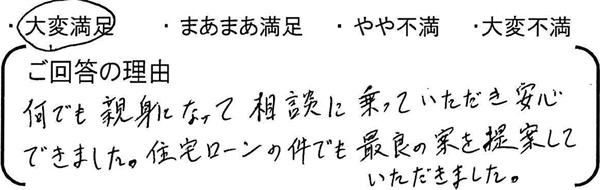 ・大変満足　・まあまあ満足　・やや不満　・大変不満
ご回答の理由
何でも親身になって相談に乗っていただき安心
できました。住宅ローンの件でも最良の案を提案して
いただきました。